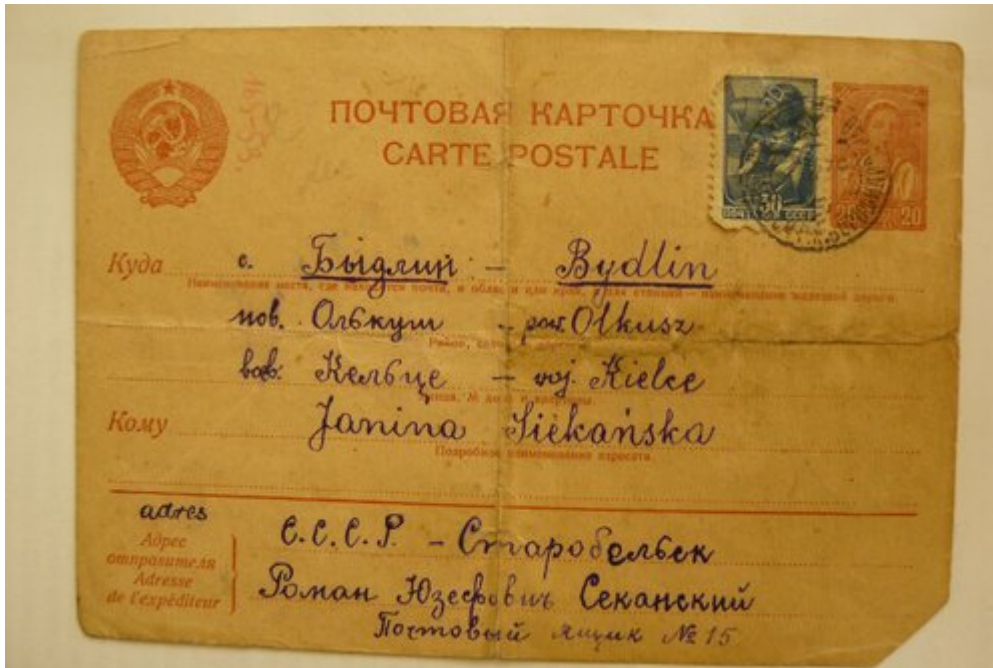 ПОЧТОВАЯ КАРТОЧКА
CARTE POSTALE
30
ПОЧТА СССР
20 20
Куда с. Быдлин - Bydlin
Наименование места, где находится почта, и области или края, а для станций — наименование железной дороги
пов. Олькуш - pow. Olkusz
Район, село
воев. Кельце - woj. Kielce
Улица, № дома и квартиры
Кому Janina Siekańska
Подробное наименование адресата
adres
Адрес
отправителя
Adresse
de l'expéditeur
С.С.С.Р. - Старобельск
Роман Юзефович Секанский
Почтовый ящик № 15